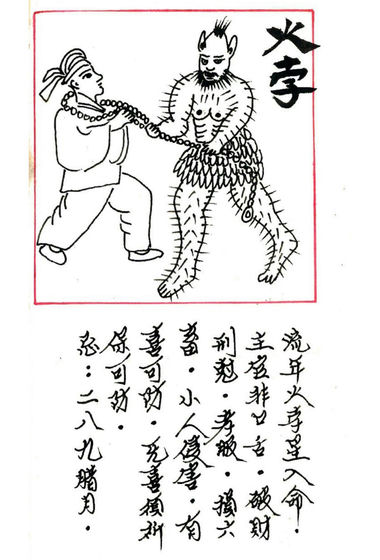 火孛
流年火孛星入命。
主官非口舌。破財
刑。孝服。損六
畜。小人侵害。有
喜可防。无喜損折
保可防。
忌：二八九臘月。